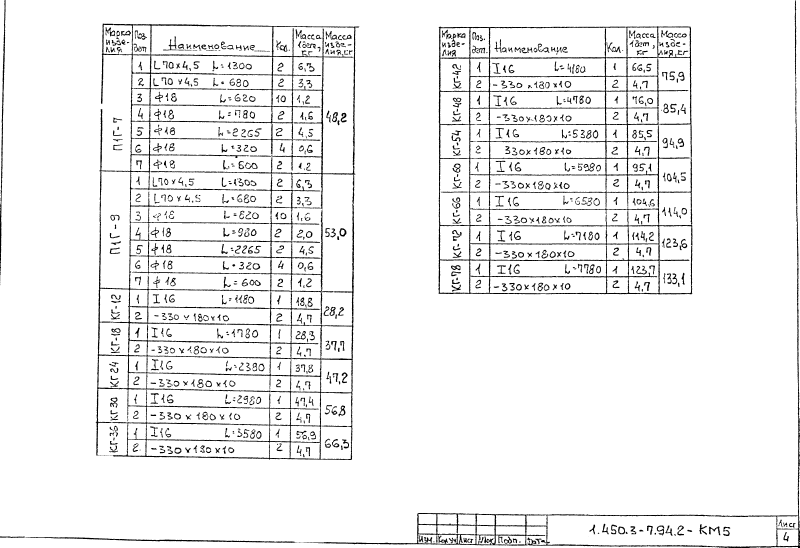 Марка изде-лия Поз. дет Наименование Кол. Масса 1дет, кг Масса изде-лия, кг
П1Г-7 48,2
1 L70×4,5 L=1300 2 6,3
2 L70×4,5 L=680 2 3,3
3 ф18 L=620 10 1,2
4 ф18 L=780 2 1,6
5 ф18 L=2265 2 4,5
6 ф18 L=320 4 0,6
7 ф18 L=600 2 1,2
П1Г-9 53,0
1 L70×4,5 L=1300 2 6,3
2 L70×4,5 L=680 2 3,3
3 ф18 L=820 10 1,6
4 ф18 L=980 2 2,0
5 ф18 L=2265 2 4,5
6 ф18 L=320 4 0,6
7 ф18 L=600 2 1,2
КГ-12 28,2
1 I16 L=1180 1 18,8
2 -330×180×10 2 4,7
КГ-18 37,7
1 I16 L=1780 1 28,3
2 -330×180×10 2 4,7
КГ 24 47,2
1 I16 L=2380 1 37,8
2 -330×180×10 2 4,7
КГ 30 56,8
1 I16 L=2980 1 47,4
2 -330×180×10 2 4,7
КГ-36 66,3
1 I16 L=3580 1 56,9
2 -330×180×10 2 4,7
Марка изде-лия Поз. дет. Наименование Кол. Масса 1дет, кг Масса изде-лия, кг
КГ-42 75,9
1 I16 L=4180 1 66,5
2 -330×180×10 2 4,7
КГ-48 85,4
1 I16 L=4780 1 76,0
2 -330×180×10 2 4,7
КГ-54 94,9
1 I16 L=5380 1 85,5
2 330×180×10 2 4,7
КГ-60 104,5
1 I16 L=5980 1 95,1
2 -330×180×10 2 4,7
КГ-66 114,0
1 I16 L=6580 1 104,6
2 -330×180×10 2 4,7
КГ-72 123,6
1 I16 L=7180 1 114,2
2 -330×180×10 2 4,7
КГ-78 133,1
1 I16 L=7780 1 123,7
2 -330×180×10 2 4,7
Изм. Кол.уч Лист №док Подп. Дата
1.450.3-7.94.2-КМ5
Лист
4